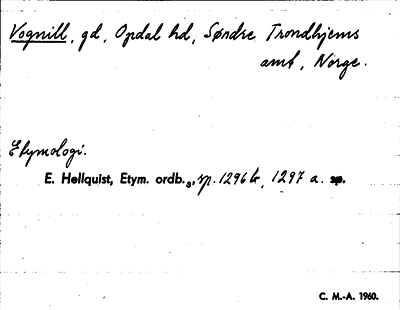 Vognill, gd, Opdal hd, Søndre Trondhjems
amt, Norge.
Etymologi.
E. Hellquist, Etym. ordb.₃, sp. 1296 b, 1297 a. sp.
C. M.-A. 1960.